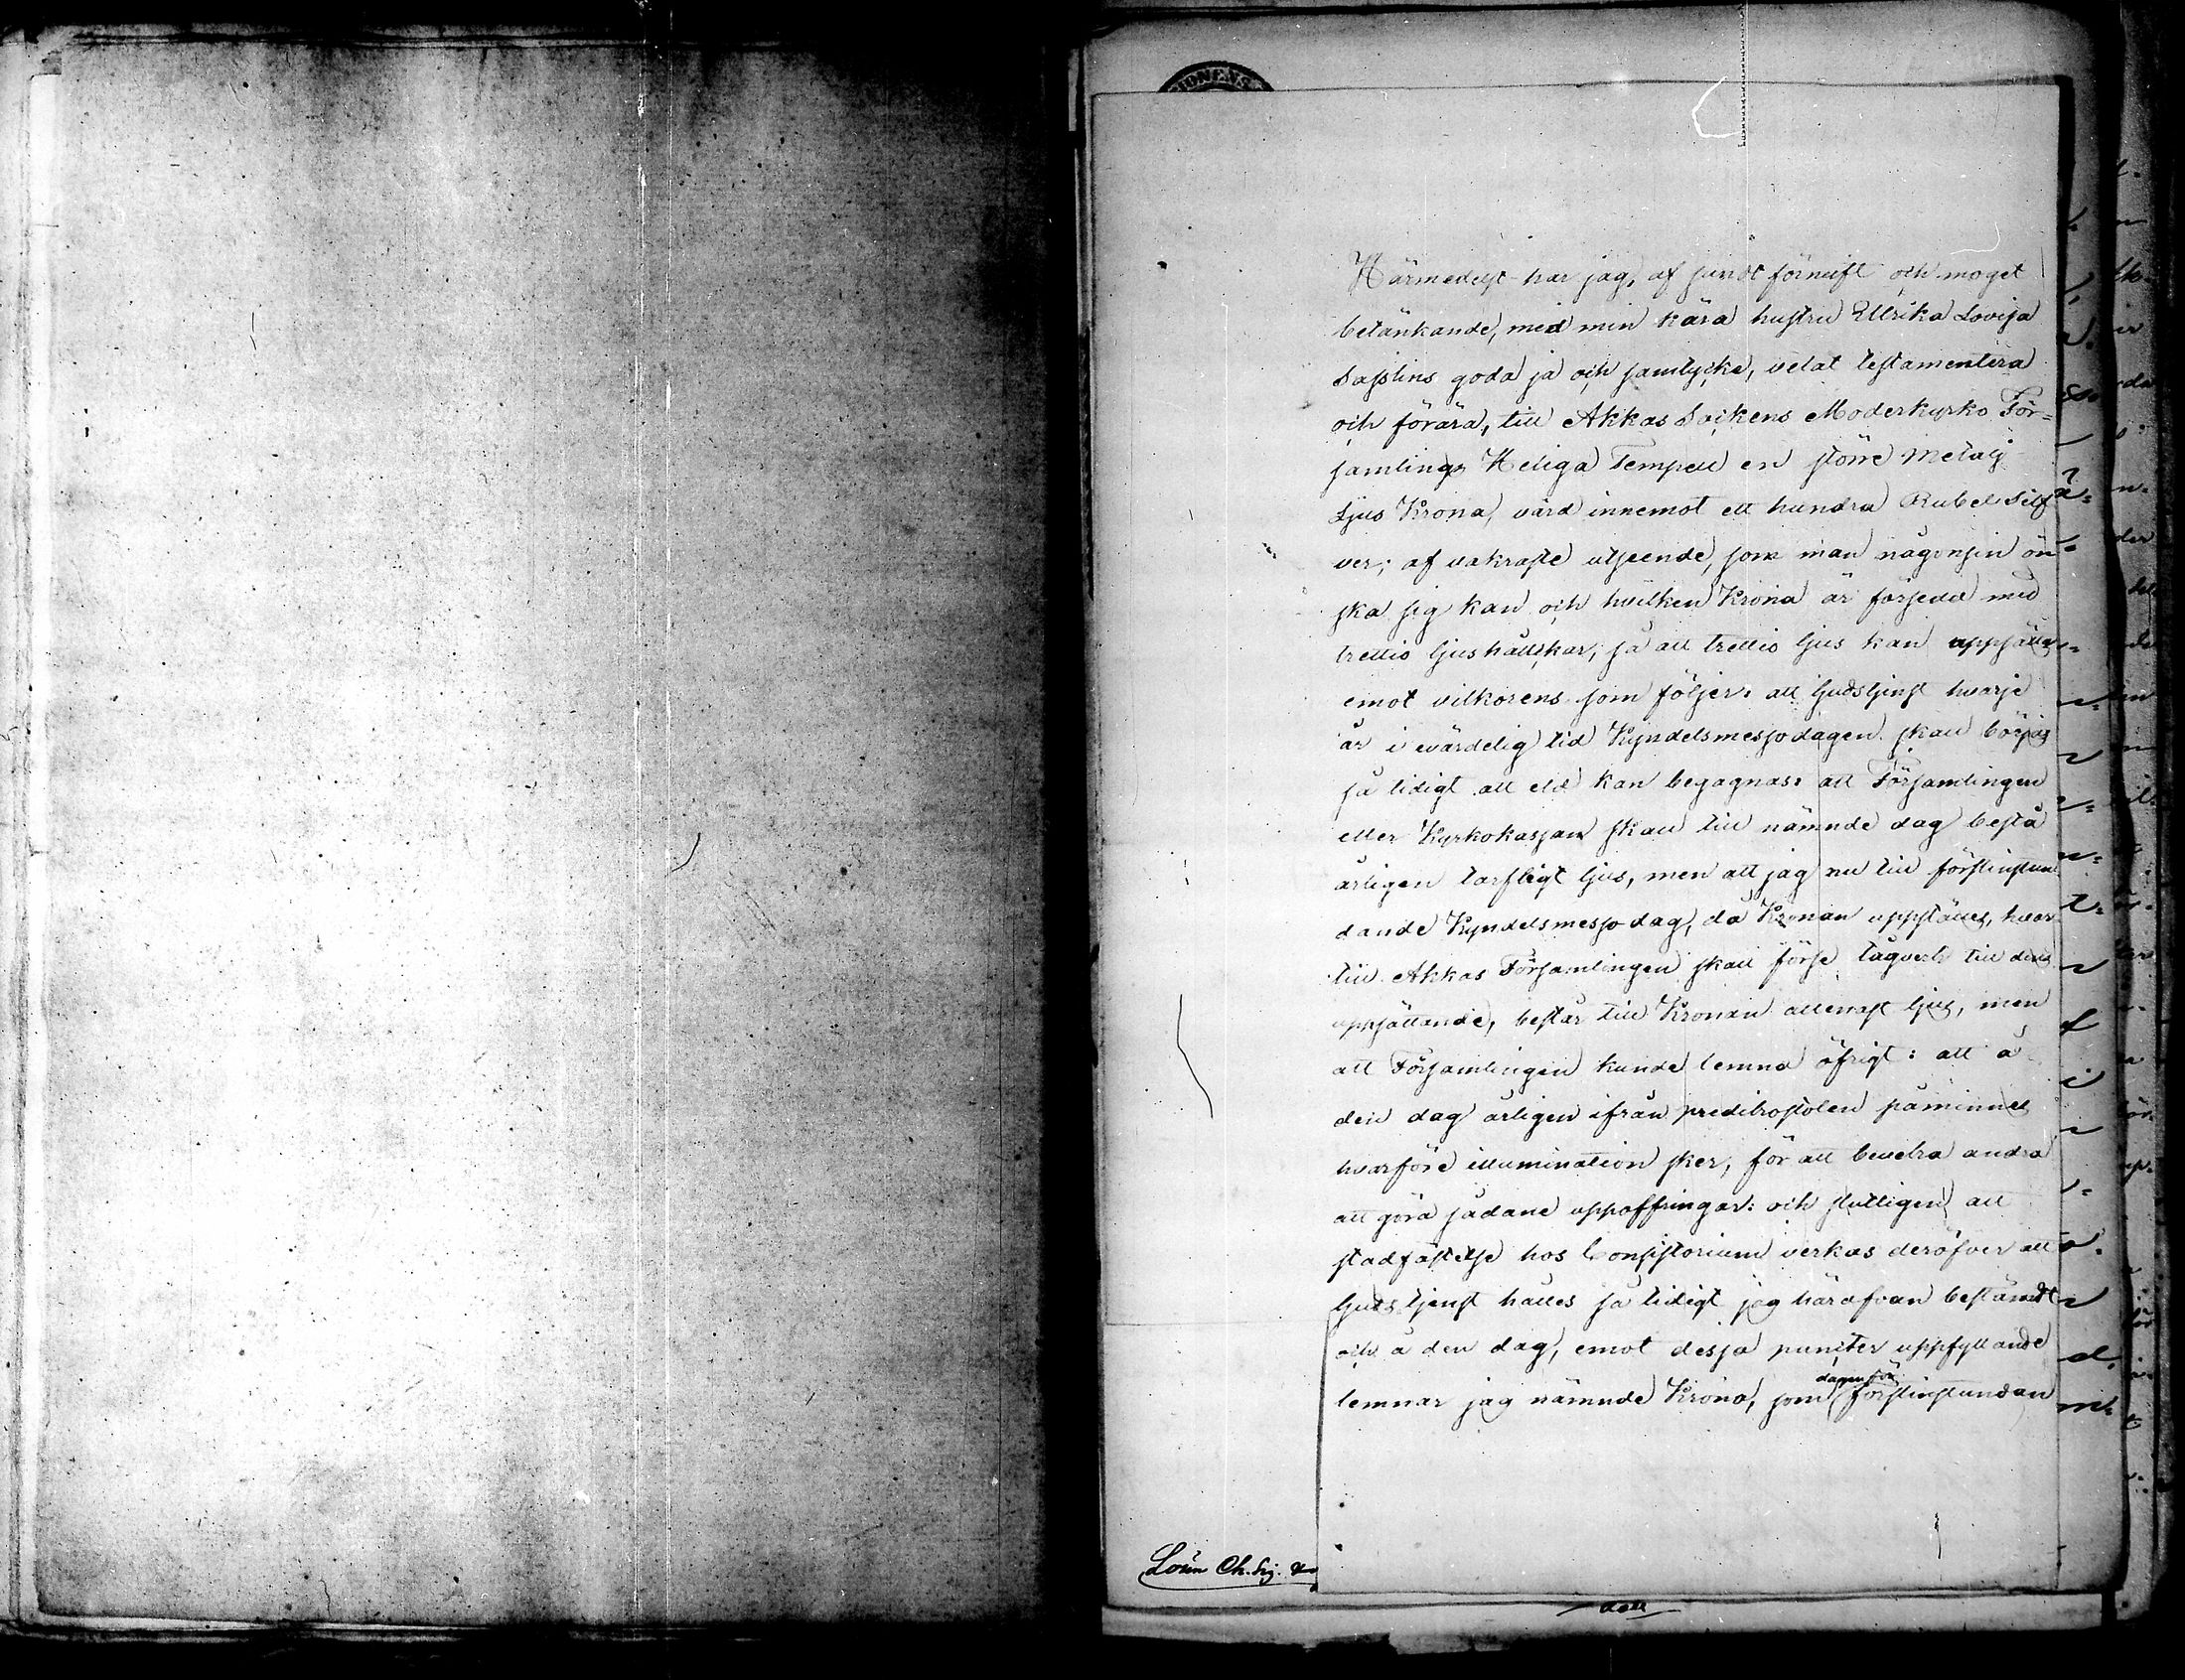 Härmedelst har jag, af sundt förnuft och moget
betänkande, med min kära hustru Ullrika Lovisa
Sasslins goda ja och samtycke, velat testamentera
och förära, till Akkas Sockens Moderkyrko För=
samlings Heliga Tempell en större Metalj
Ljus Krona, värd innemot ett hundra Rubel Silf
ver; af vakraste utseende, som man någonsin ön
ska sig kan och hvilken Krona är försedd med
trettio ljushållskar, så att trettio ljus kan uppsättas
emot vilkorens som följer: att Gudstjenst hvarje
år i evärdelig tid Kyndelsmessodagen skall börjas
så tidigt att eld kan begagnas: att Församlingen
eller Kyrkokassan skall till nämnde dag bestå
årligen tarfligt ljus, men att jag nu till förstinstun
dande Kyndelsmesso dag, då Kronan uppställes, hvar
till Akkas Församlingen skall förse tågverk till dess
uppsättande, består till Kronan allenast ljus, men
att Församlingen kunde lemna öfrigt: att å
den dag årligen ifrån predikostolen påminnes
hvarföre illumination sker, för att beveka andra
att göra sådane uppoffringar: och slutligen att
stadfästelse hos Consistorium verkas deröfver att
Gudstjenst hålles så tidigt jag härofvan bestämdt
och å den dag, emot dessa puncter uppfyllande
lemnar jag nämnde Krona, som dagen för förstinstundan